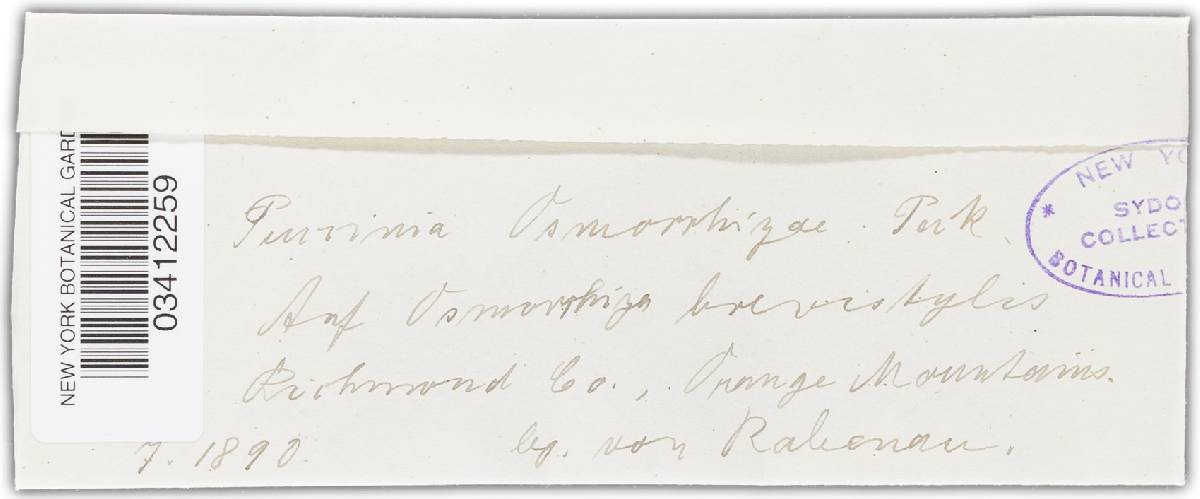 NEW YORK BOTANICAL GARD
03412259
NEW YO
SYDO
COLLECT
* BOTANICAL
Puccinia Osmorrhizae Peck.
Auf Osmorrhiza brevistylis
Richmond Co., Orange Mountains.
7. 1890. lg. von Rabenau.